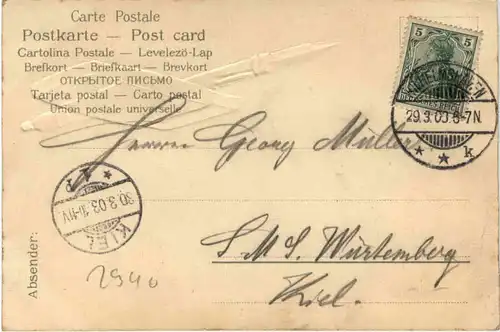 Carte Postale
Postkarte — Post card
Cartolina Postale — Levelező-Lap
Brefkort — Briefkaart — Brevkort
ОТКРЫТОЕ ПИСЬМО
Tarjeta postal — Carto postal
Union postale universelle
5 5
29.3.03.6-7N
* * k
Herrn Georg Müller
30.3.03.
KIEL
S.M.S. Würtemberg
Kiel.
Absender:
2940